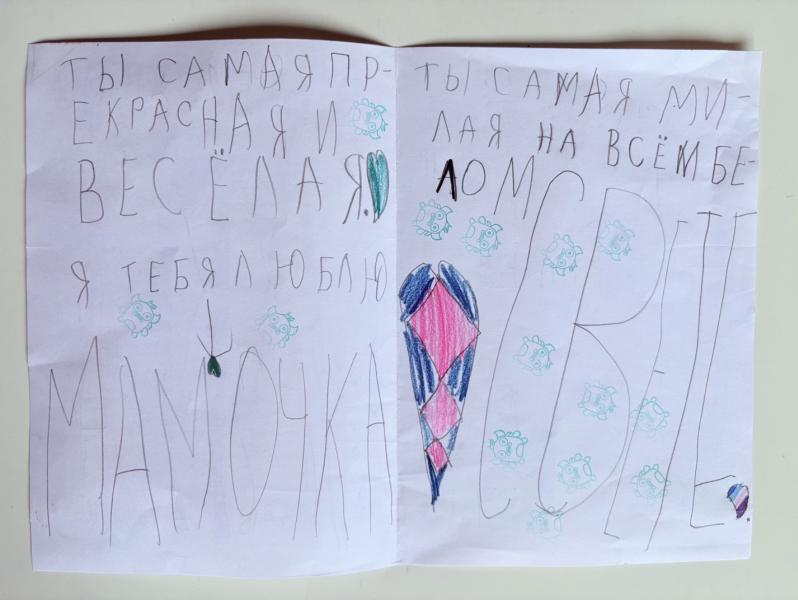 ТЫ САМАЯ ПР-
ЕКРАСНАЯ И
ВЕСЁЛАЯ.
Я ТЕБЯ ЛЮБЛЮ
МАМОЧКА
ТЫ САМАЯ МИ-
ЛАЯ НА ВСЁМ БЕ-
ЛОМ СВЕТЕ.